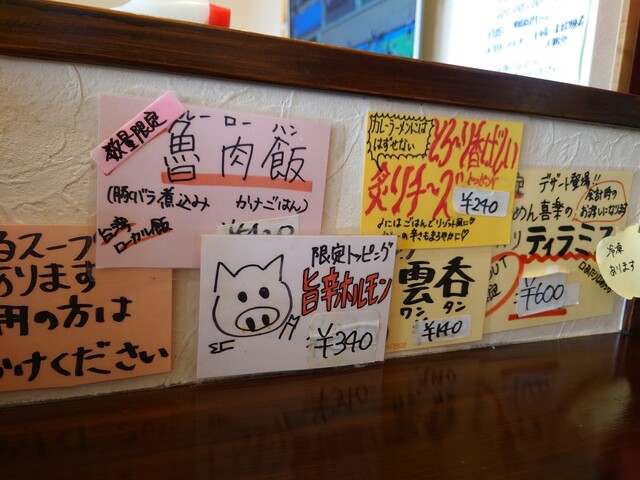 数量限定
ルーローハン
魯肉飯
(豚バラ煮込み かけごはん)
台湾
ローカル飯
るスープ
あります
用の方は
かけください
限定トッピング
旨辛ホルモン
¥340
カレーラーメンには
はずせない
とろ〜り香ばしい
炙りチーズ
トッピング
¥240
〆にはごはんとリゾット風に♡
の辛さもまろやかに♡
雲呑
ワンタン
¥140
デザート登場!!
めん喜楽の
ティラミス
会計時の
お渡しになります
¥600
冷凍
あります